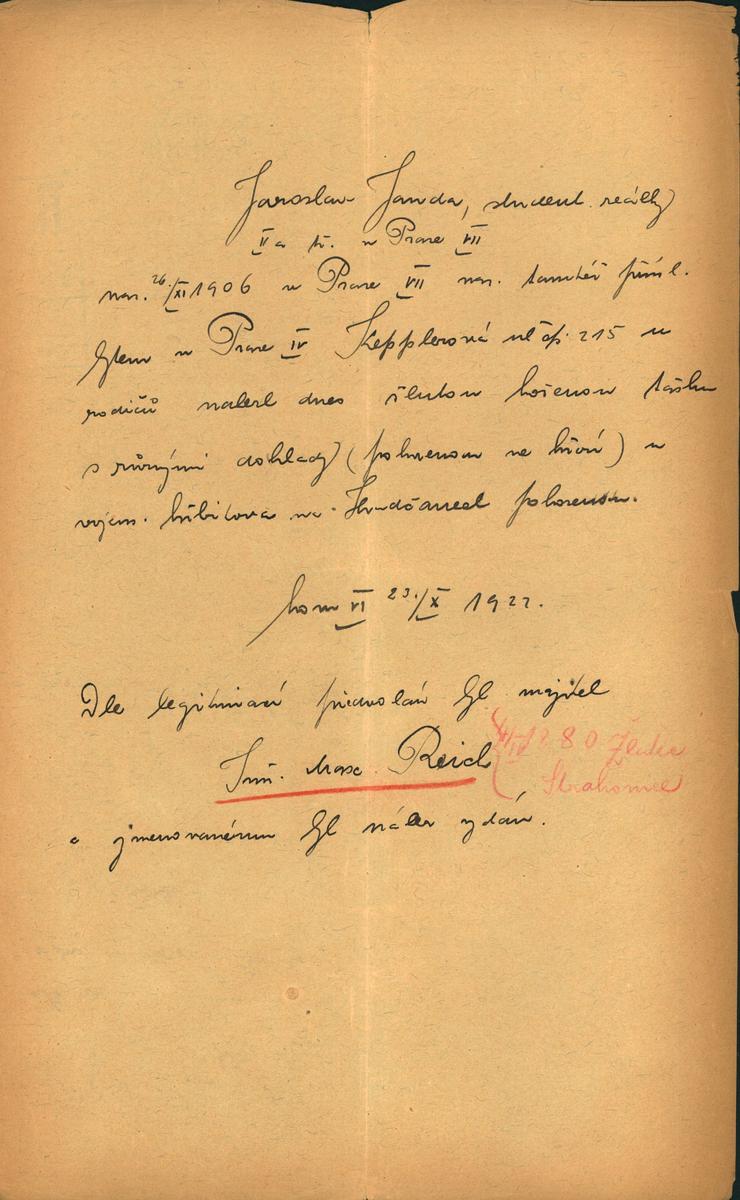 Jaroslav Janda, student reálky
II a tř. v Praze VII
nar. 26./XI 1906 v Praze VII nar. tamtéž přísl.
bytem v Praze IV Kepplerová ul čp. 215 u
rodičů nalezl dnes žlutou koženou tašku
s různými doklady (pohozenou ve křoví) u
vojen. hřbitova na Hradčanech pohozenou.
kom VI 23./X 1922.
Dle legitimací předvolán byl majitel
Inž. Max. Reich
IV 80
Strahovem
a jmenovanému byl nález vydán.